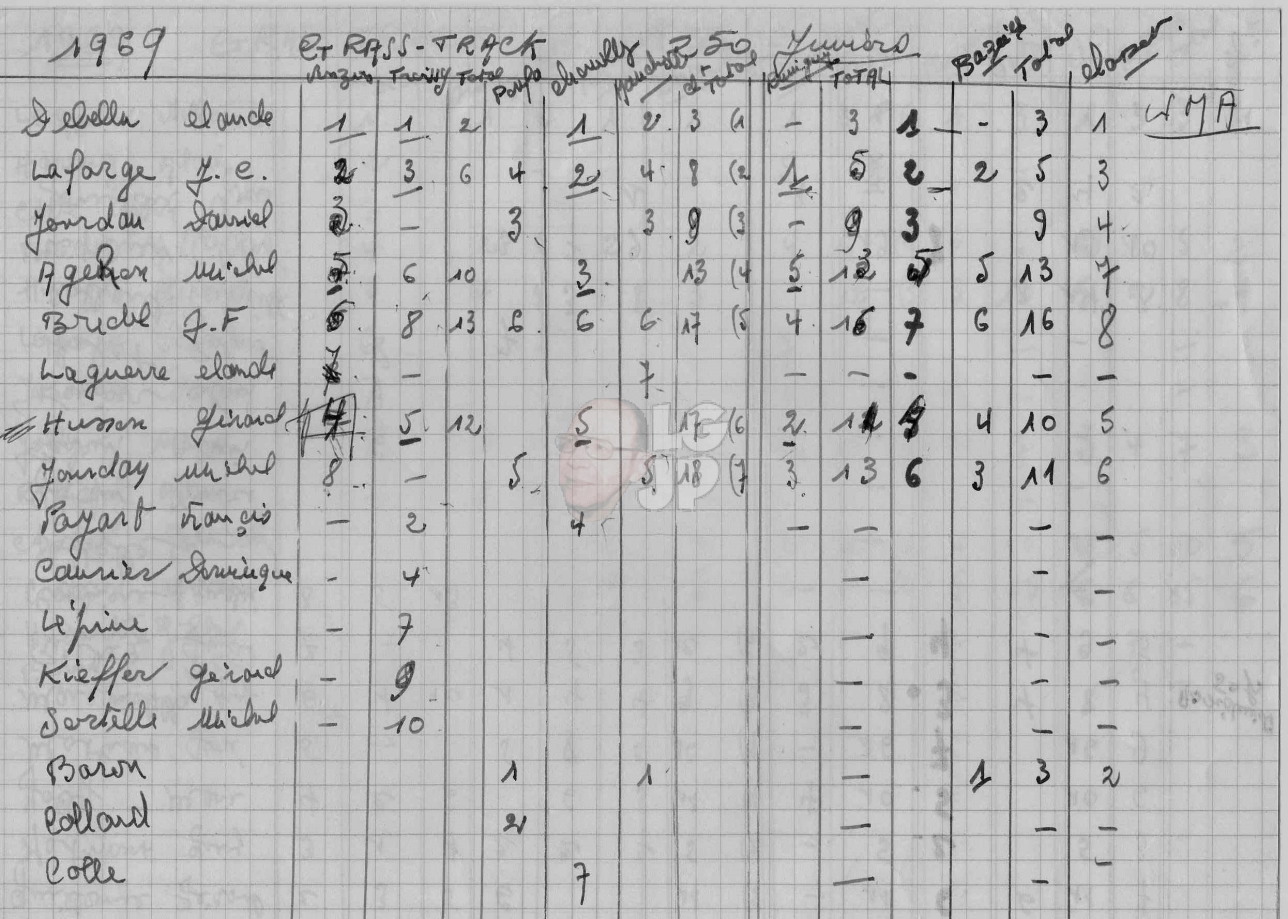 1969 GRASS-TRACK 250 Juniors
Total Poupa Chauilly Total TOTAL Bazeilles Total Classem.
Debella Claude 1 1 2 1 2 3 (1 - 3 1 - 3 1 WMA
Laforge J.C. 2 3 6 4 2 4 8 (2 1 5 2 2 5 3
Jourdau Daniel 3 - 3 3 9 (3 - 9 3 9 4
Ageron Michel 5 6 10 3 13 (4 5 13 5 5 13 7
Bridel J.F 6 8 13 6 6 6 17 (5 4 16 7 6 16 8
Laguerre Claude 7 - 7 - - - - -
Husson Gérard 4 5 12 5 17 (6 2 11 4 4 10 5
LG
JP
Jourday Michel 8 - 5 5 18 (7 3 13 6 3 11 6
Payart François - 2 4 - - - -
Caurier Dominique - 4 - - -
Lépine - 7 - - -
Kieffer Gérard - 9 - - -
Sortelle Michel - 10 - - -
Baron 1 1 - 1 3 2
Collard 2 - - -
Colle 7 - - -